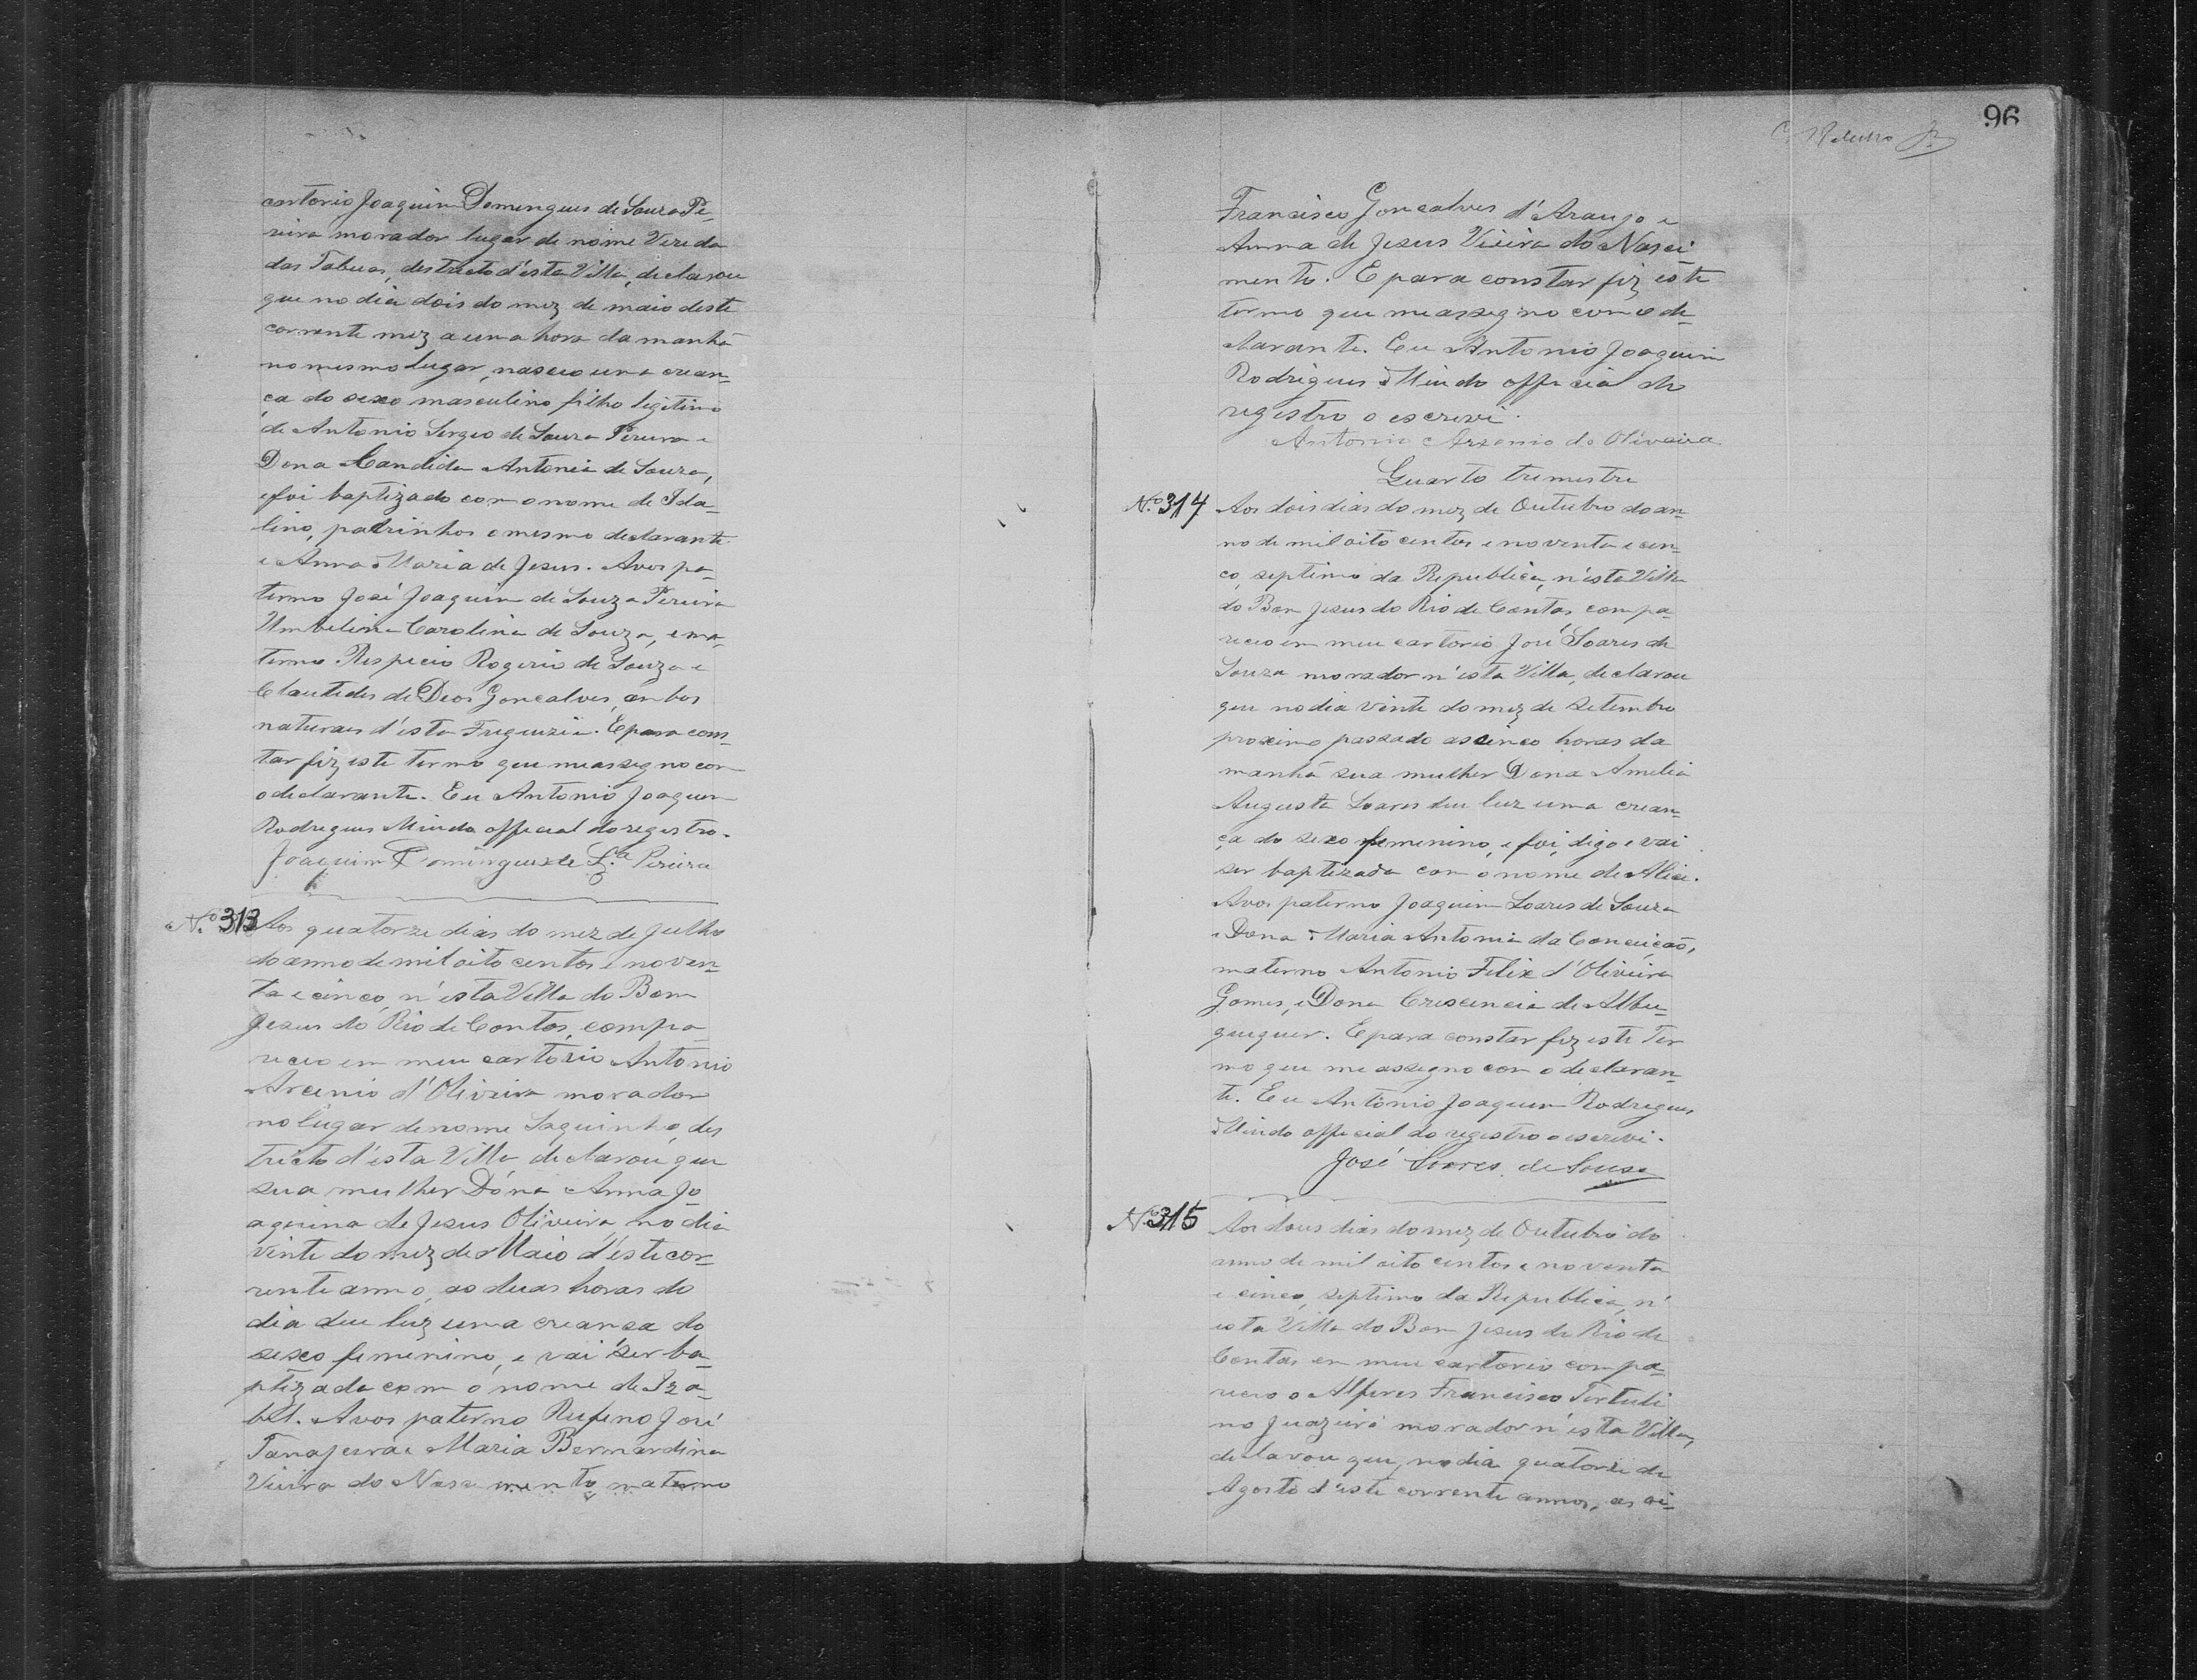 cartorio Joaquim Domingues de Souza Pe-
reira morador lugar de nome Vereda
das Tabuas, destricto d'esta Villa, declarou
que no dia dois do mez de maio deste
corrente mez a uma hora da manhã
no mesmo lugar, nasceo uma crean-
ça do sexo masculino filho legitimo
de Antonio Sergeo de Souza Pereira e
Dona Candida Antonia de Souza,
e foi baptizado com o nome de Ida-
lino, padrinhos o mesmo declarante
e Anna Maria de Jesus. Avos pa-
terno José Joaquim de Souza Pereira
Umbelina Carolina de Souza, e ma-
terno Respicio Rogerio de Souza e
Clautides de Deos Gonçalves, ambos
naturaes d'esta Freguezia. E para cons-
tar fiz este termo que me assegno com
o declarante. Eu Antonio Joaquim
Rodrigues Mindo official do registro.
Joaquim Domingues de Sza Pereira
No. 313 Aos quatorze dias do mez de Julho
do anno de mil oito centos e noven-
ta e cinco, n'esta Villa do Bom
Jesus do Rio de Contas, compa-
receo em meu cartorio Antonio
Arcenio d'Oliveira morador
no lugar de nome Laguinha, des
tricto d'esta Villa declarou que
sua mulher Dona Anna Jo
aquina de Jesus Oliveira, no dia
vinte do mez de Maio d'este cor-
rente anno, as duas horas do
dia deu luz uma creança do
sexo femenino, e vai ser ba-
ptizada com o nome de Iza-
bel. Avos paterno Rufino José
Tanajura e Maria Bernardina
Vieira do Nascimento, materno
96
Francisco Goncalves d'Araujo e
Anna de Jesus Vieira do Nasci
mento. E para constar fiz este
termo que me assegno com o de-
clarante. Eu Antonio Joaquim
Rodrigues Mindo official do
registro o escrevi.
Antonio Arzenio de Oliveira
Quarto trimestre
No. 314 Aos dois dias do mez de Outubro do an-
no de mil oito centos e noventa e cin-
co, septimo da Republica, n'esta Villa
do Bom Jesus do Rio de Contas, compa-
receo em meu cartorio José Soares de
Souza morador n'esta Villa, declarou
que no dia vinte do mez de Setembro
proximo passado as cinco horas da
manhã sua mulher Dona Amelia
Augusta Soares deu luz uma crean-
ça do sexo femenino, e foi, digo e vai
ser baptizada com o nome de Alice.
Avos paterno Joaquim Soares de Souza
e Dona Maria Antonia da Conceição,
materno Antonio Felix d'Oliveira
Gomes, e Dona Crescencia de Albu-
querquer. E para constar fiz este Ter
mo que me assegno com o declaran-
te. Eu Antonio Joaquim Rodrigues
Mindo official do registro o escrevi.
José Soares de Sousa
No. 315 Aos dous dias do mez de Outubro do
anno de mil oito centos e noventa
e cinco, septimo da Republica, n'
esta Villa do Bom Jesus do Rio de
Contas em meu cartorio compa-
receo o Alferes Francisco Tertuli
no Juazeiro morador n'esta Villa,
declarou que, no dia quatorze de
Agosto d'este corrente annos, as oi-